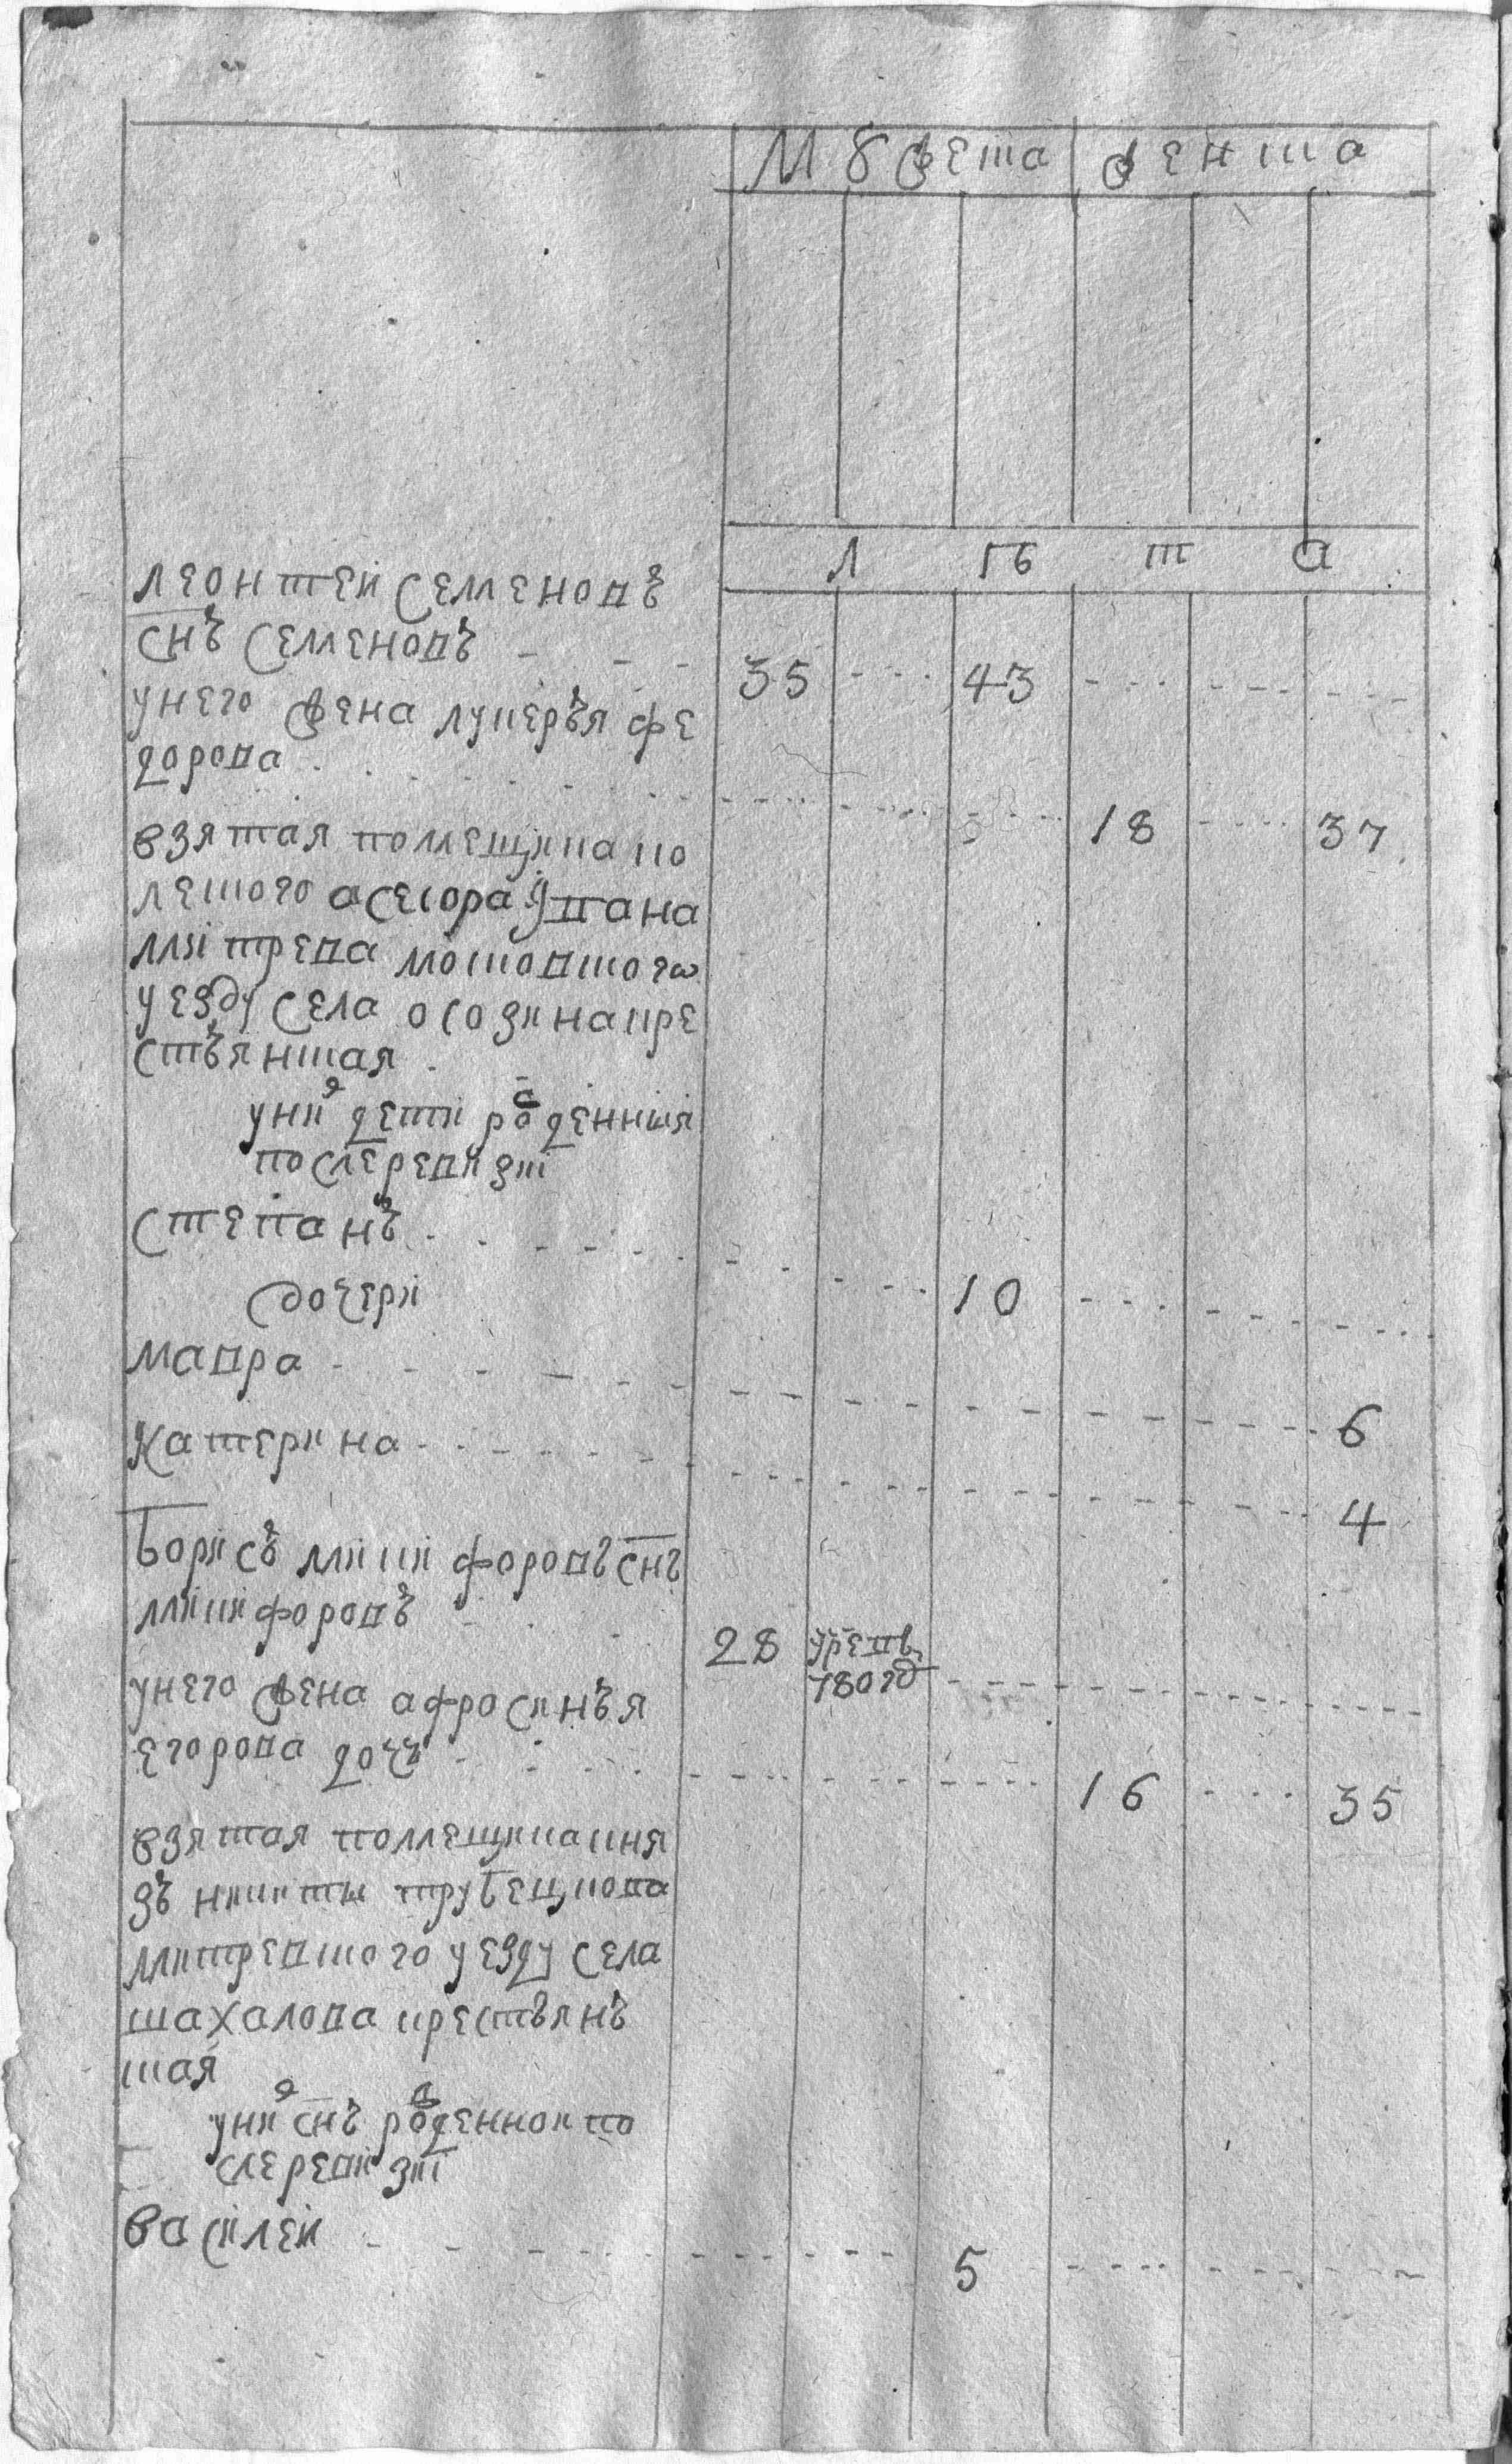 Мужеска женска
Л ѣ т а
Леонтей Семеновъ
снъ Семеновъ 35 43
у него жена Лукерья Фе
дорова 18 37
взятая помещика ко
лешского асесора Ивана
Митрева московского
уезду села Осо
стьянская
у ни дети рожденныя
после ревизи
Степанъ 10
дочери
Мавра 6
Катерина 4
Борисъ Никифоровъ снъ
Никифоровъ 28 умре въ
780 год
у него жена Афросинья
Егорова дочь 16 35
взятая помещика кня
зъ Никиты Трубецкова
Дмитревского уезду села
Шахалова крестьянъ
ская
у ни снъ рожденной по
сле ревизи
Василей 5